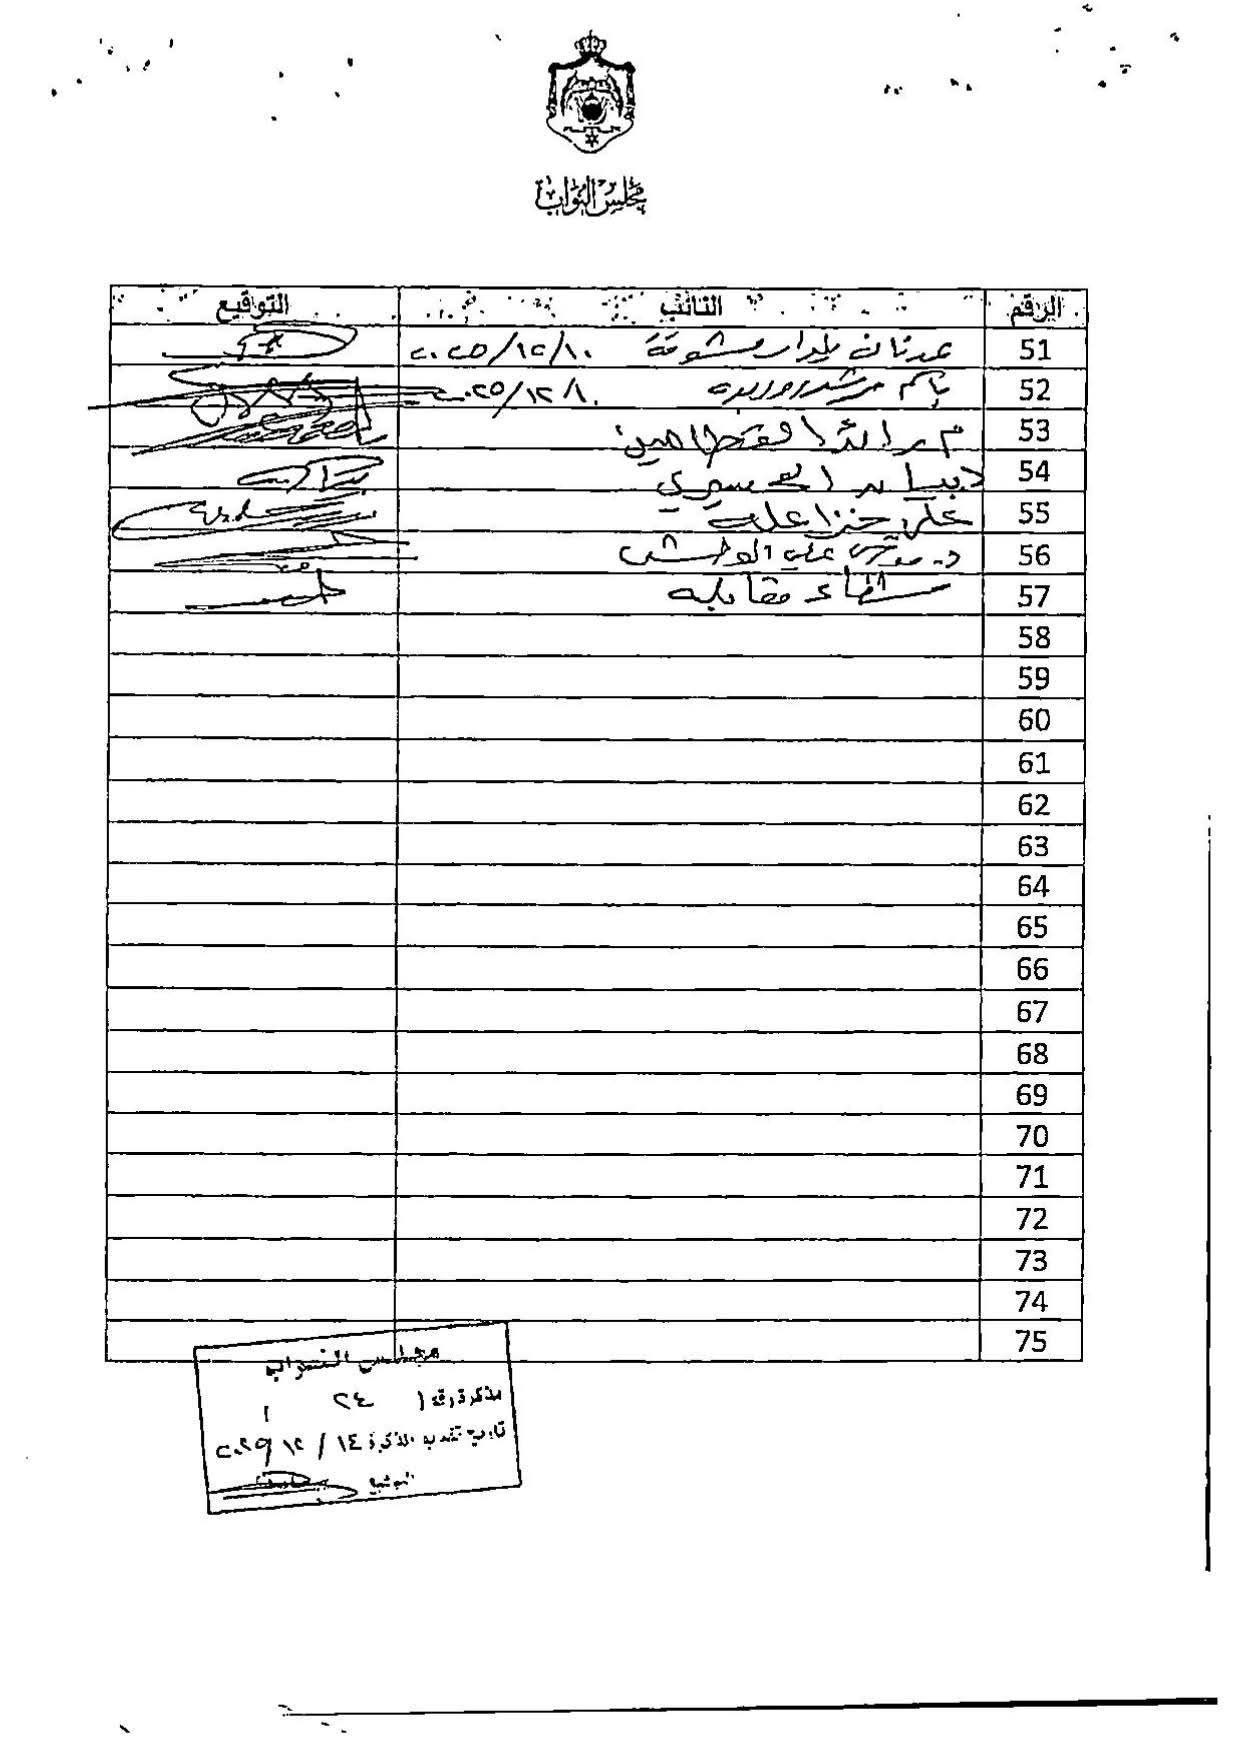 مجلس النواب
الرقم النائب التوقيع
51 عدنان يلدار مشوقة ٢٠٢٥/١٢/١٠
52 باسم ٢٠٢٥/١٢/١٠
53 م رائد القطامين
54 ديا
55 علي خزاعله
56 د. علي الوحش
57 مقابله
58
59
60
61
62
63
64
65
66
67
68
69
70
71
72
73
74
75
مجلس النواب
مذكرة رقم ( ٢٤ )
تاريخ تقديم المذكرة ١٤ / ١٢ / ٢٠٢٥
التوقيع